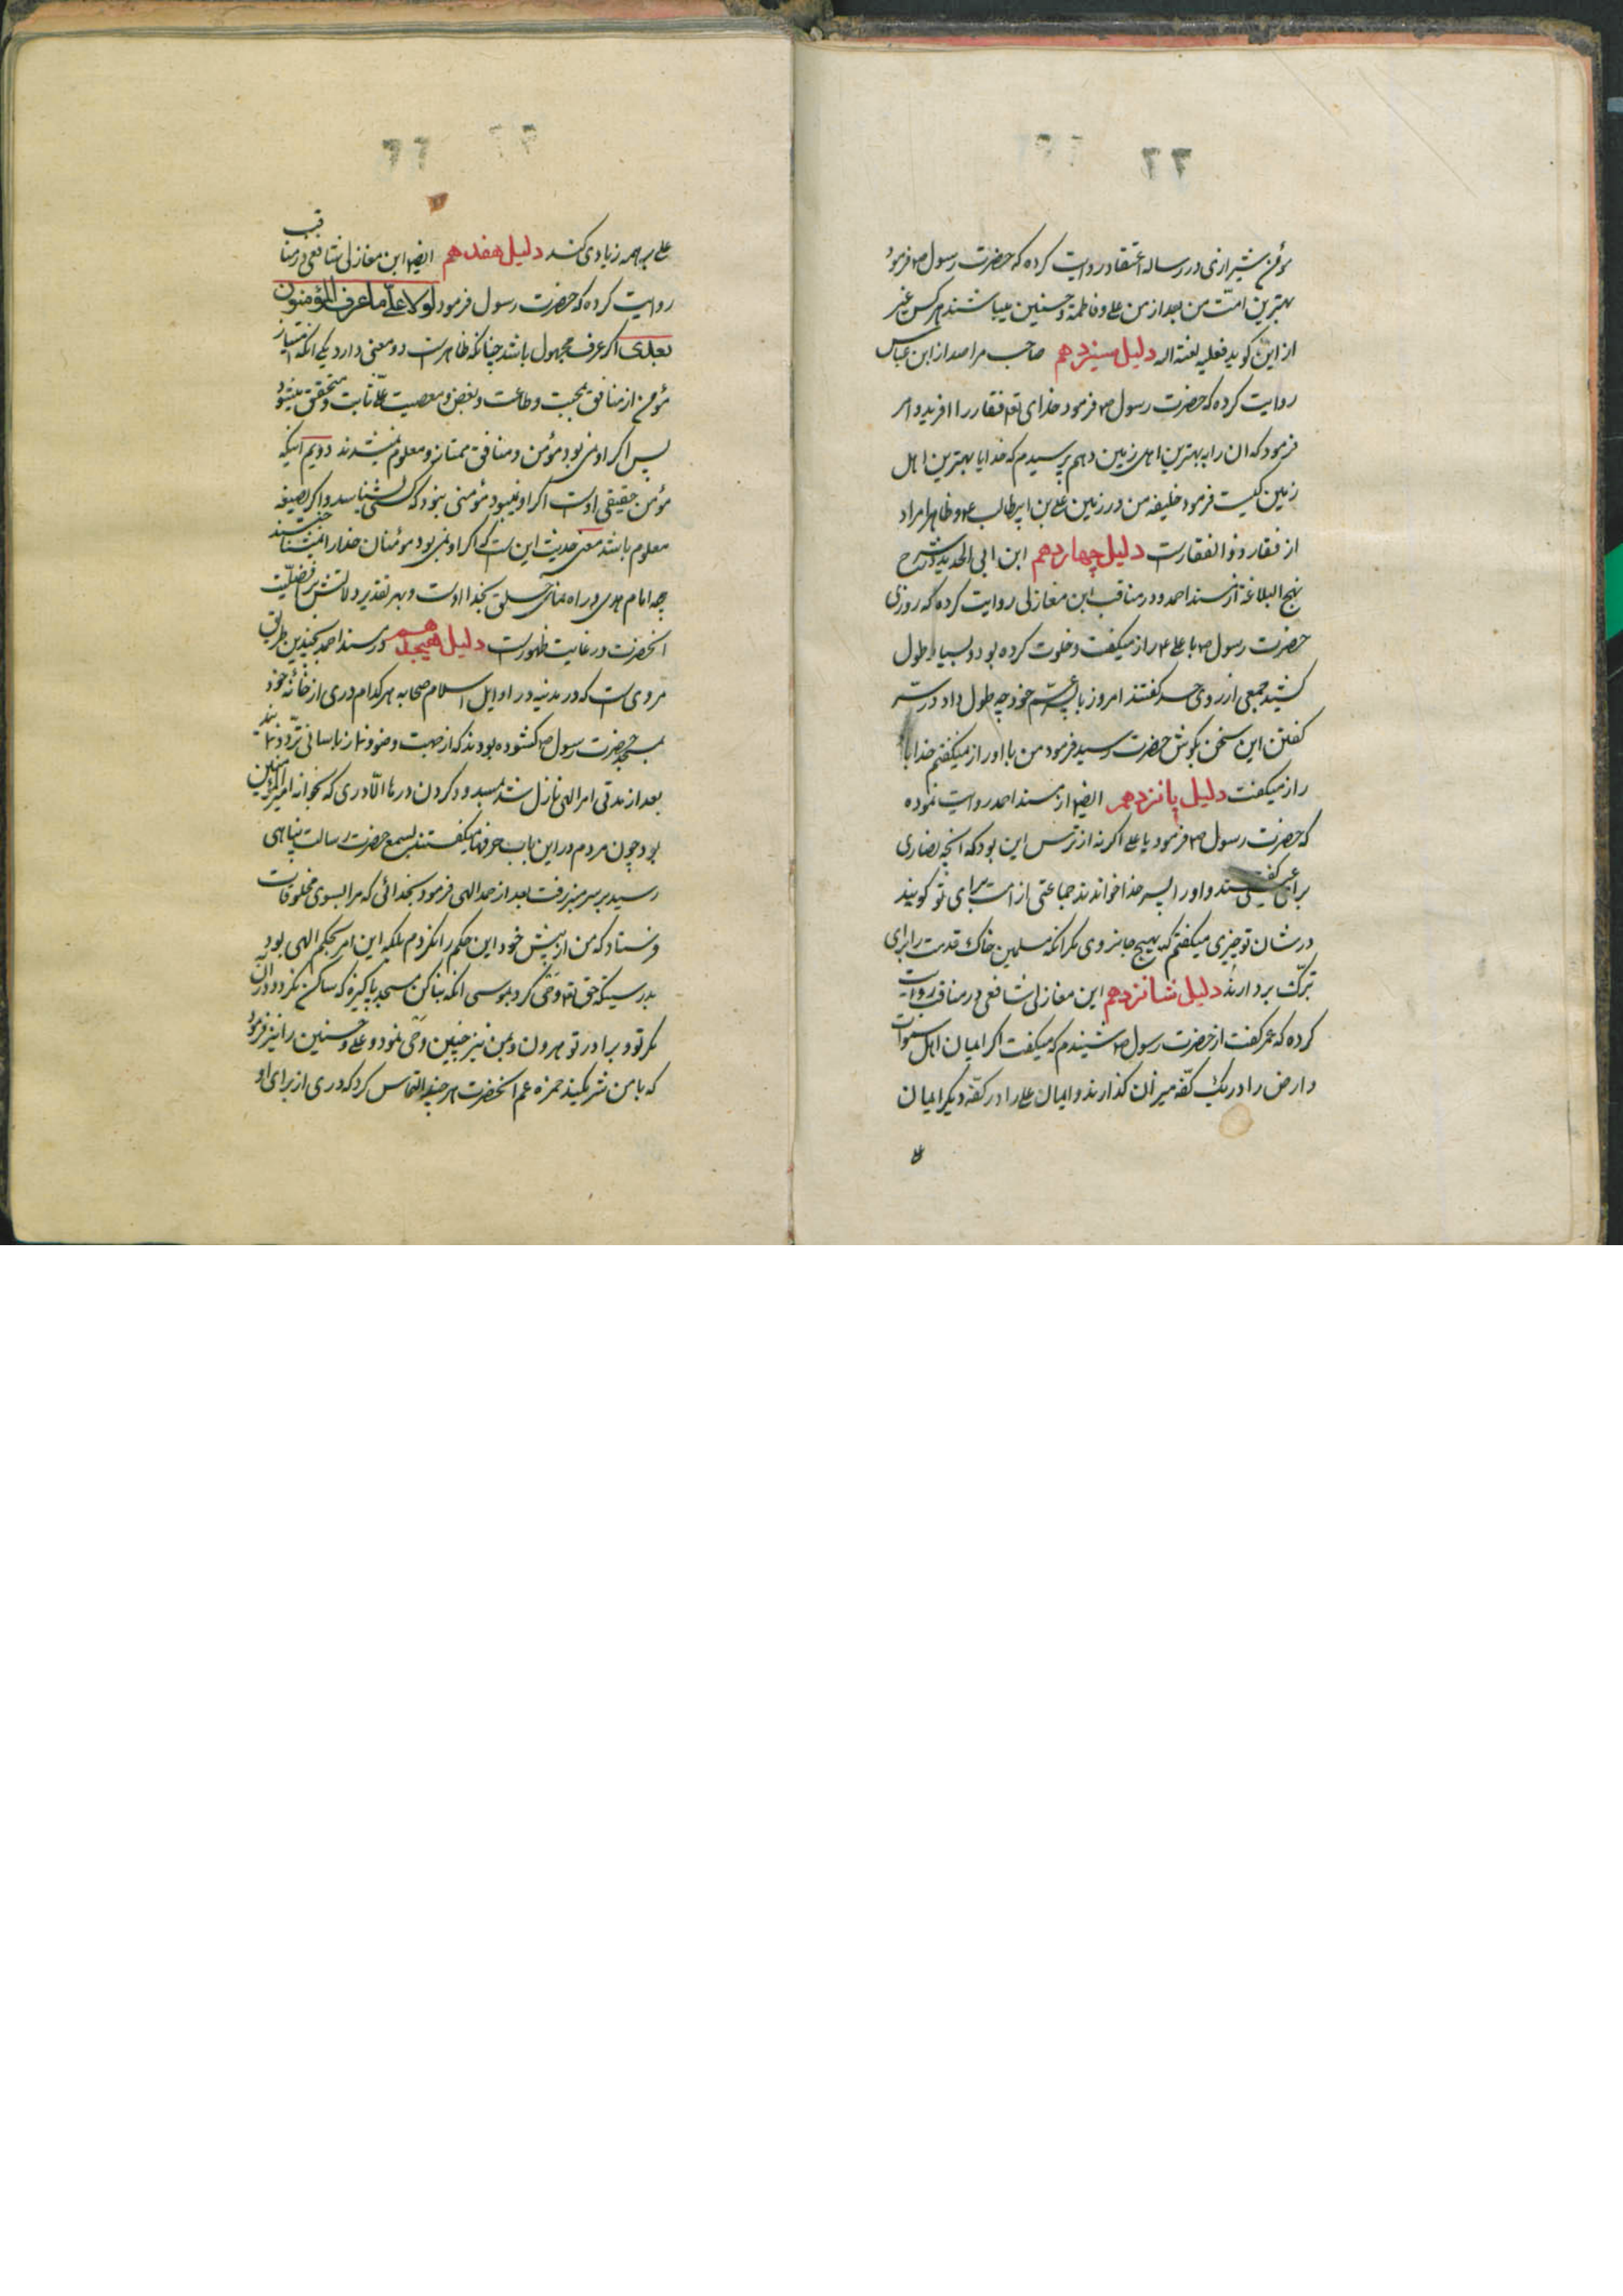 ۲۲
مؤمن شیرازی در رساله اعتقاد روایت کرده که حضرت رسول ص فرمود
بهترین امّت من بعد از من علی و فاطمة و حسنین میباشند هر کس غیر
از این کوید فعلیه لعنة اله دلیل سیزدهم صاحب مراصد از ابن عباس
روایت کرده که حضرت رسول ص فرمود خدای تع فقار را افرید و امر
فرمود که ان را به بهترین اهل زمین دهم پرسیدم که خدایا بهترین اهل
زمین کیست فرمود خلیفه من در زمین علی بن ابیطالب ع و ظاهرا مراد
از فقار ذوالفقارست دلیل چهاردهم ابن ابی الحدید در شرح
نهج البلاغة از مسند احمد و در مناقب ابن مغازلی روایت کرده که روزی
حضرت رسول ص با علی ع راز میکفت و خلوت کرده بود و بسیار طول
کشید جمعی از روی حسد کفتند امروز با پسر عمّ خود چه طول داد در سرّ
کفتن این سخن بکوش حضرت رسید فرمود من با او راز میکفتم خدا با
راز میکفت دلیل پانزدهم ایضا از مسند احمد روایت نموده
که حضرت رسول ص فرمود یا علی اکر نه از ترس این بود که انچه نصاری
برای عیسی کفتند و او را پسر خدا خواندند جماعتی از امت برای تو کویند
در شان تو چیزی میکفتم که بهیچ جا نروی مکر انکه مسلمین خاک قدمت را برای
تبرّک بردارند دلیل شانزدهم ابن مغازلی شافعی در مناقب روایت
کرده که عمر کفت از حضرت رسول ص شنیدم که میکفت اکر ایمان اهل سموات
و ارض را در یک کفّه میزان کذارند و ایمان علی را در کفّه دیکر ایمان
علی
علی بر همه زیادی کند دلیل هفدهم ایضا ابن مغازلی شافعی در مناقب
روایت کرده که حضرت رسول فرمود لولا علیّ ما عرف المؤمنون
بعدی اکر عرف مجهول باشد چنانکه ظاهرست دو معنی دارد یکی انکه امتیاز
مؤمن از منافق بمحبت و طاعت و بغض و معصیت علی ثابت و متحقق میشود
پس اکر او نمی بود مؤمن و منافق ممتاز و معلوم نمیشدند دویم اینکه
مؤمن حقیقی اوست اکر او نمیبود مؤمنی نبود که کسی بشناسد و اکر بصیغه
معلوم باشد معنی حدیث این است که اکر او نمی بود مؤمنان خدا را نمیشناختند
چه امام هدی و راه نمای خلق بخدا اوست و بهر تقدیر دلالتش بر افضلیّت
انحضرت در غایت ظهورست دلیل هیجدهم در مسند احمد بچندین طریق
مروی است که در مدینه در اوایل اسلام صحابه هر کدام دری از خانه خود
بمسجد حضرت رسول ص کشوده بودند که از جهت وضو و نماز باسانی تردّد نمایند
بعد از مدتی امر الهی نازل شد بمسدود کردن درها الّا دری که بخوانه امیر المؤمنین
بود چون مردم در این باب حرفها میکفتند بسمع حضرت رسالت پناهی
رسید بر سر منبر رفت بعد از حمد الهی فرمود بخدائی که مرا بسوی مخلوقات
فرستاد که من از پیش خود این حکم را نکردم بلکه این امر بحکم الهی بود
بدرستیکه حق تع وحی کرد بموسی انکه بنا کن مسجد پاکیزه که ساکن نکردد در ان
مکر تو و برادر تو هرون و بمن نیز چنین وحی نمود و علی و حسنین را نیز فرمود
که با من شریکند حمزه عم انحضرت هر چند التماس کرد که دری از برای او